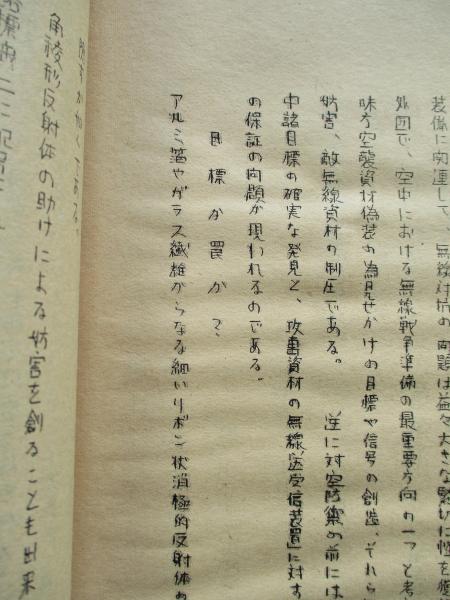 装備に関連して、無線対抗の問題は益々大きな緊切に性を獲
外国で、空中における無線戦争準備の最重要方向の一つと考
味方空襲資材偽装の為見せかけの目標や信号の創造、それら
妨害、敵無線資材の制圧である。 逆に対空防禦の前には
中諸目標の確実な発見と、攻撃資材の無線「送受信装置」に対す
の保証の問題が現われるのである。
目標か罠か?
アルミ箔やガラス繊維からなる細いリボン状消極的反射体の
である。
角稜形反射体の助けによる妨害を創ることも出来